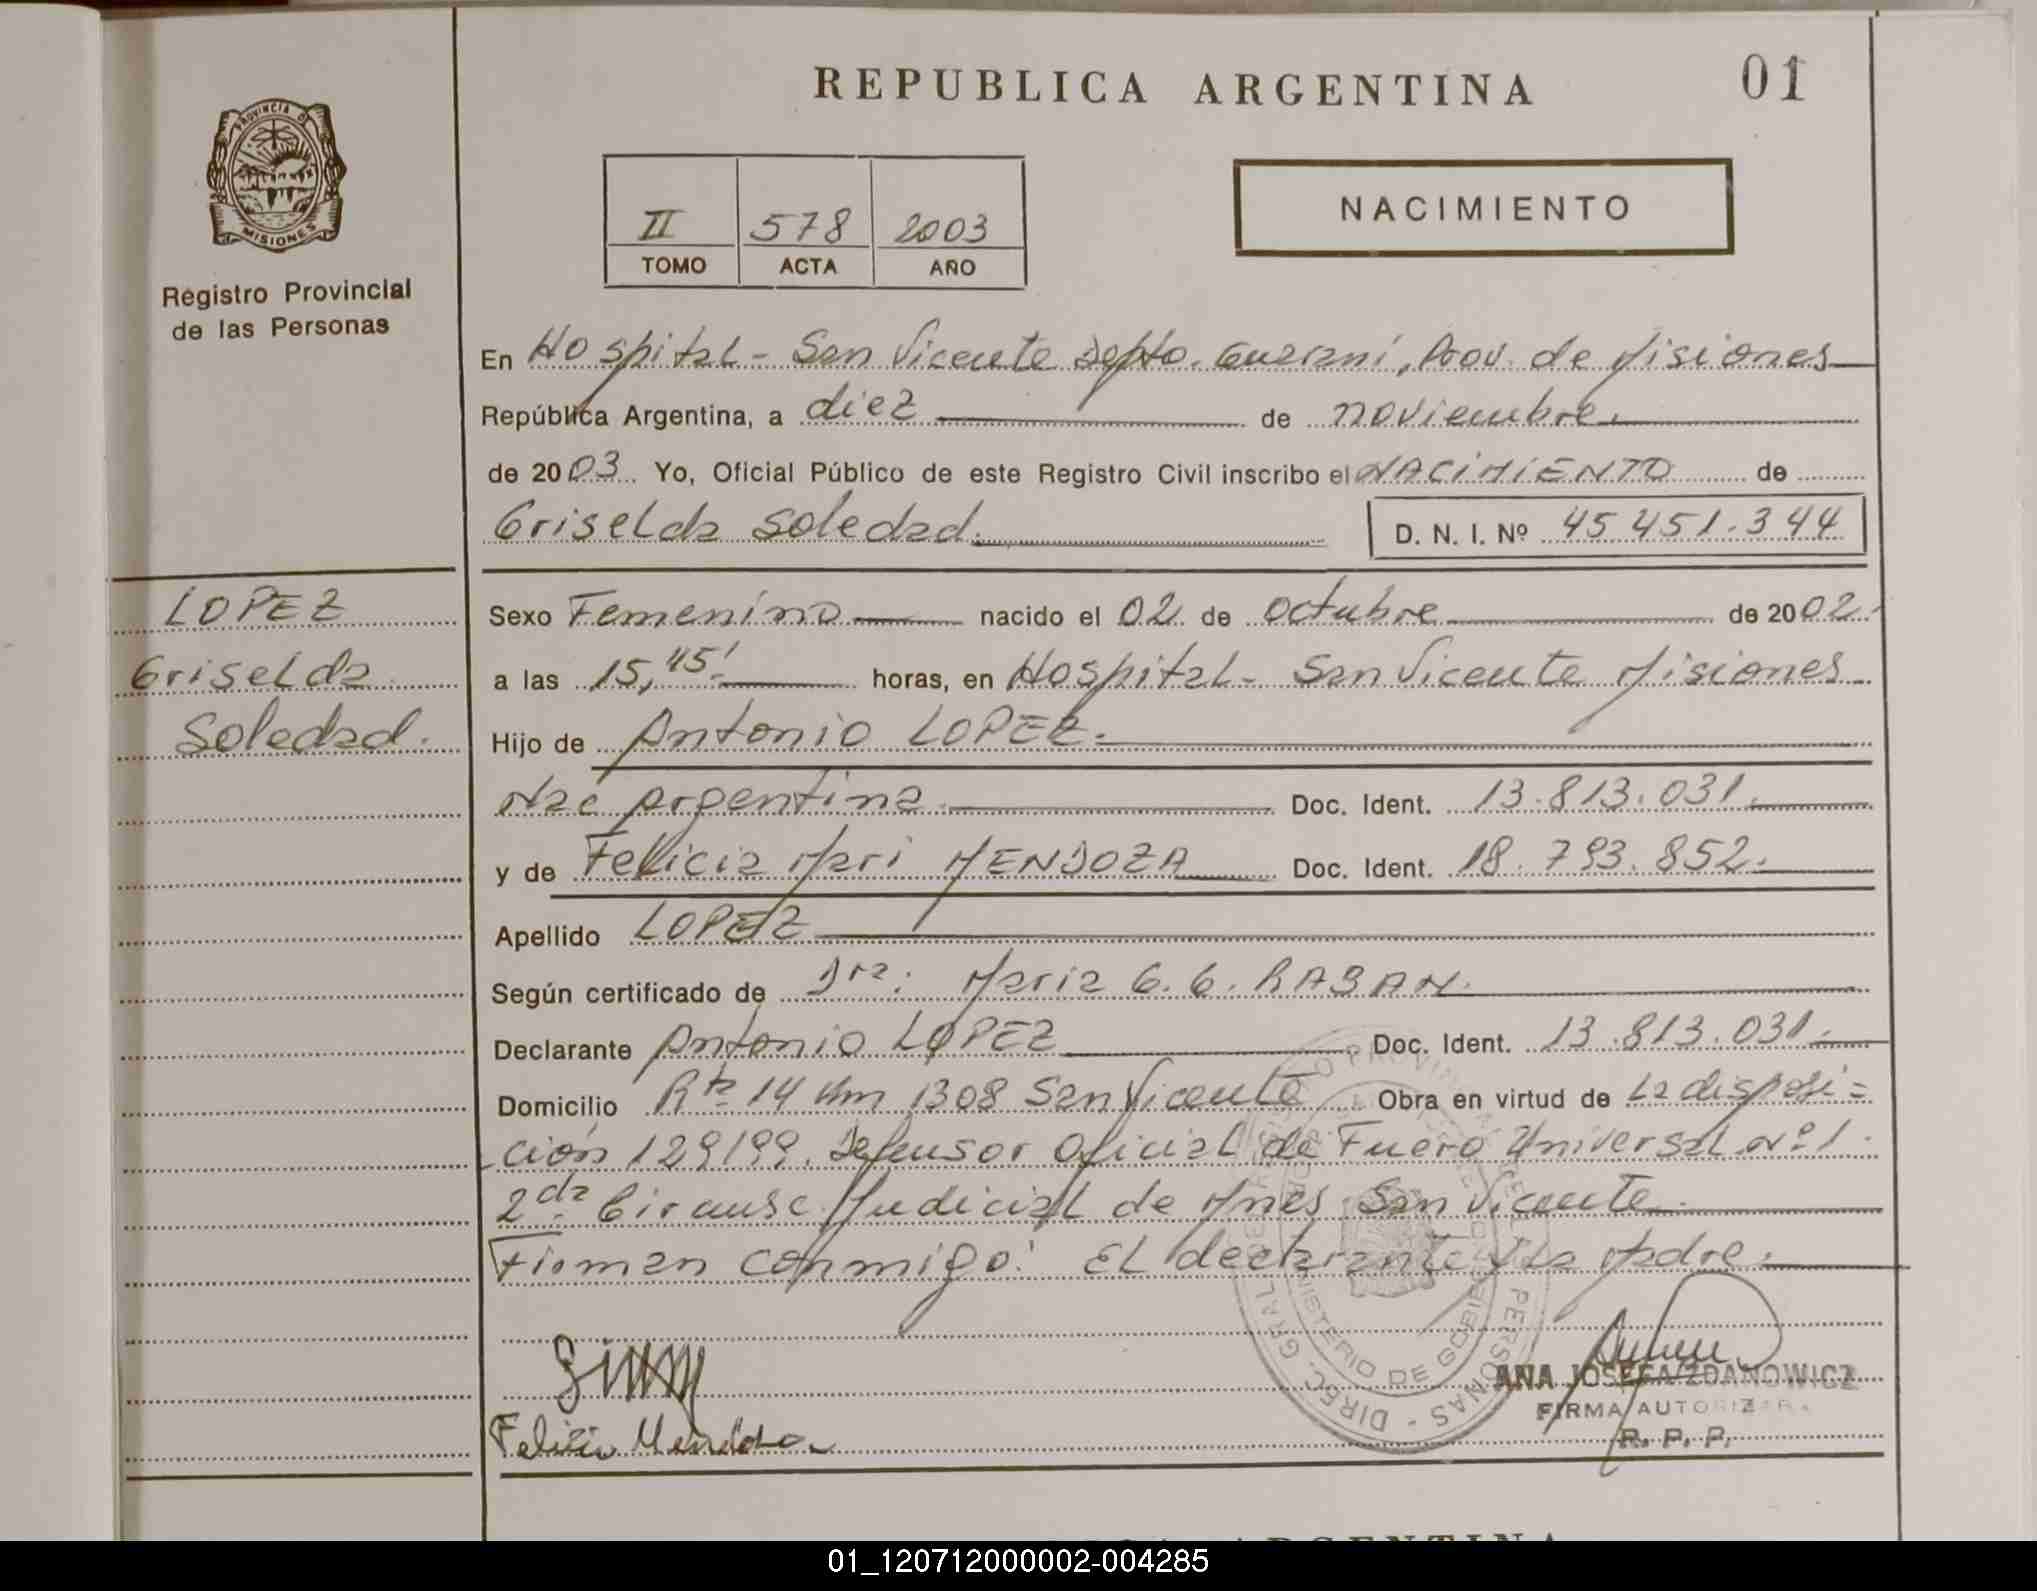 REPUBLICA ARGENTINA
01
PROVINCIA D
MISIONES
Registro Provincial
de las Personas
II 578 2003
TOMO ACTA AÑO
NACIMIENTO
En Hospital - San Vicente Depto. Guaraní, Prov. de Misiones
República Argentina, a diez de noviembre
de 2003 Yo, Oficial Público de este Registro Civil inscribo el NACIMIENTO de
Griselda Soledad. D. N. I. Nº 45.451.344
LOPEZ
Griselda
Soledad.
Sexo Femenino nacido el 02 de octubre de 2002.
a las 15,45' horas, en Hospital - San Vicente Misiones
Hijo de Antonio LOPEZ.
Nac Argentina. Doc. Ident. 13.813.031.
y de Felicia Mari MENDOZA Doc. Ident. 18.793.852.
Apellido LOPEZ
Según certificado de Dra: Maria G. G. RABAN.
Declarante Antonio LOPEZ Doc. Ident. 13.813.031.
Domicilio Rta 14 Km 1308 San Vicente Obra en virtud de La disposi=
ción 129/99. Defensor Oficial de Fuero Universal Nº 1.
2da Circunsc. Judicial de Mnes San Vicente.
Firman conmigo: El declarante y la Madre.
Felicia Mendoza
ANA JOSEFA ZDANOWICZ
FIRMA AUTORIZADA
R. P. P.
MINISTERIO DE GOBIERNO
DIREC. GRAL
PERSONAS
ARGENTINA
01_120712000002-004285